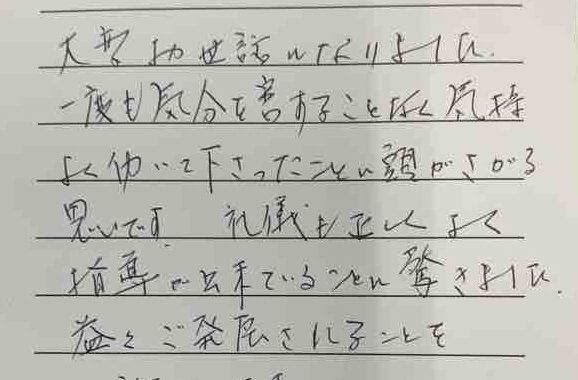 大変お世話になりました.
一度も気分を害することなく気持
よく働いて下さったことに頭がさがる
思いです。 礼儀も正しくよく
指導が出来ていることに驚きました.
益々ご発展されることを